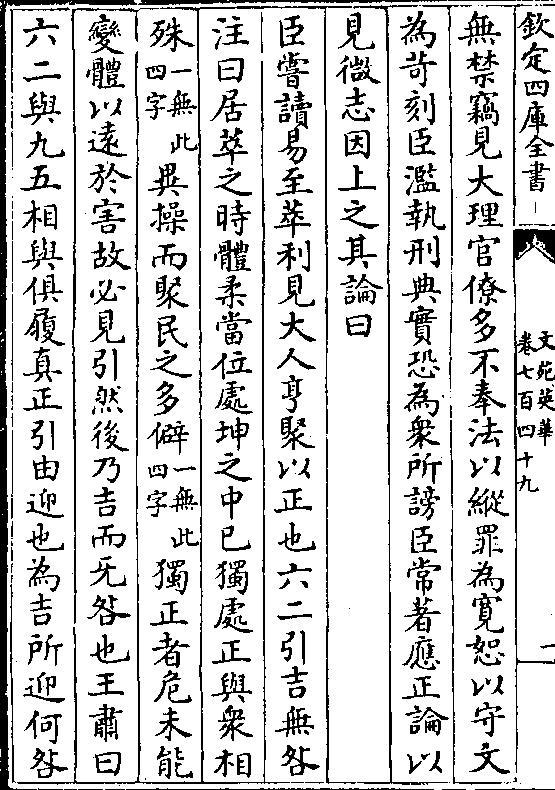 欽定四庫全書
文苑英華
卷七百四十九
一
無禁竊見大理官僚多不奉法以縱罪為寛恕以守文
為苛刻臣濫執刑典實恐為衆所謗臣常著應正論以
見微志因上之其論曰
臣嘗讀易至萃利見大人亨聚以正也六二引吉無咎
注曰居萃之時體柔當位處坤之中已獨處正與衆相
殊一無此四字異操而聚民之多僻一無此四字獨正者危未能
變體以遠於害故必見引然後乃吉而无咎也王肅曰
六二與九五相與俱履真正引由迎也為吉所迎何咎